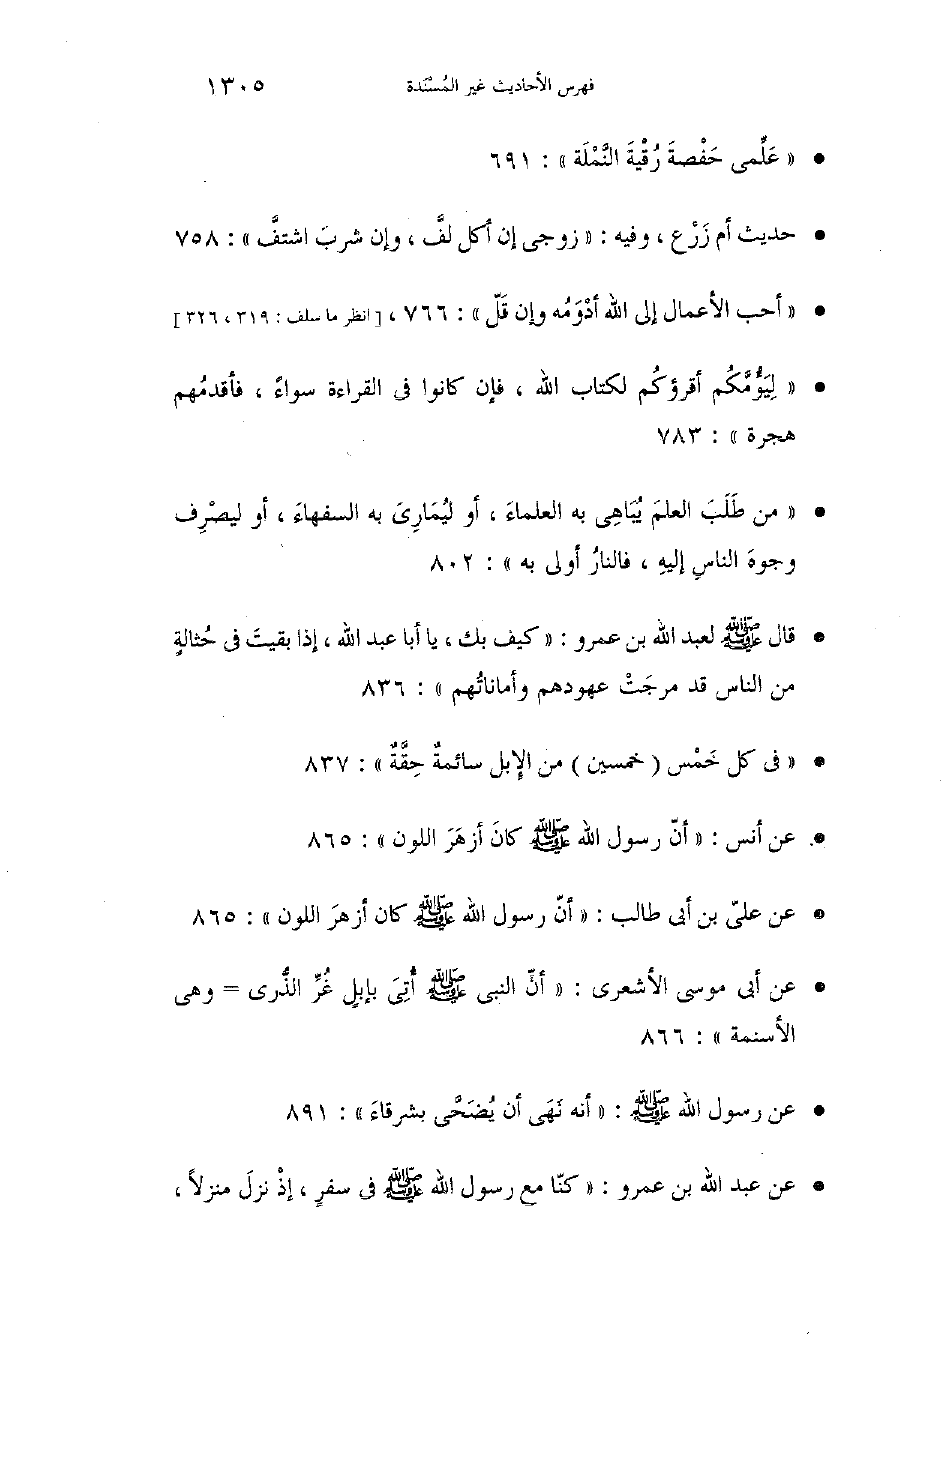 فهرس الأحاديث غير المُسْنَدة ١٣٠٥
• « عَلِّمى حَفْصةَ رُقْيةَ النَّمْلَة » : ٦٩١
• حديث أم زَرْع ، وفيه : « زوجى إن أكل لفَّ ، وإن شربَ اشتفَّ » : ٧٥٨
• « أحب الأعمال إلى الله أدْوَمُه وإن قَلّ » : ٧٦٦ ، [ انظر ما سلف : ٣١٩ ، ٣٢٦ ]
• « لِيَؤُمَّكُم أقرؤكُم لكتاب الله ، فإن كانوا فى القراءة سواءً ، فأقدمُهم
هجرة » : ٧٨٣
• « من طَلَبَ العلمَ يُبَاهِى به العلماءَ ، أو ليُمَارِىَ به السفهاءَ ، أو ليصْرِف
وجوهَ الناسِ إليهِ ، فالنارُ أولى به » : ٨٠٢
• قال ﷺ لعبد الله بن عمرو : « كيف بك ، يا أبا عبد الله ، إذا بقيتَ فى حُثالةٍ
من الناس قد مرجَتْ عهودهم وأماناتُهم » : ٨٣٦
• « فى كل خَمْس ( خمسين ) من الإبل سائمةٌ حِقَّةٌ » : ٨٣٧
• عن أنس : « أنّ رسول الله ﷺ كانَ أزهَرَ اللون » : ٨٦٥
• عن علىّ بن أبى طالب : « أنّ رسول الله ﷺ كان أزهرَ اللون » : ٨٦٥
• عن أبى موسى الأشعرى : « أنَّ النبى ﷺ أُتِىَ بإبلٍ غُرِّ الذُّرى = وهى
الأسنمة » : ٨٦٦
• عن رسول الله ﷺ : « أنه نَهَى أن يُضَحَّى بشرقاءَ » : ٨٩١
• عن عبد الله بن عمرو : « كنّا مع رسول الله ﷺ فى سفرٍ ، إذْ نزلَ منزلاً ،